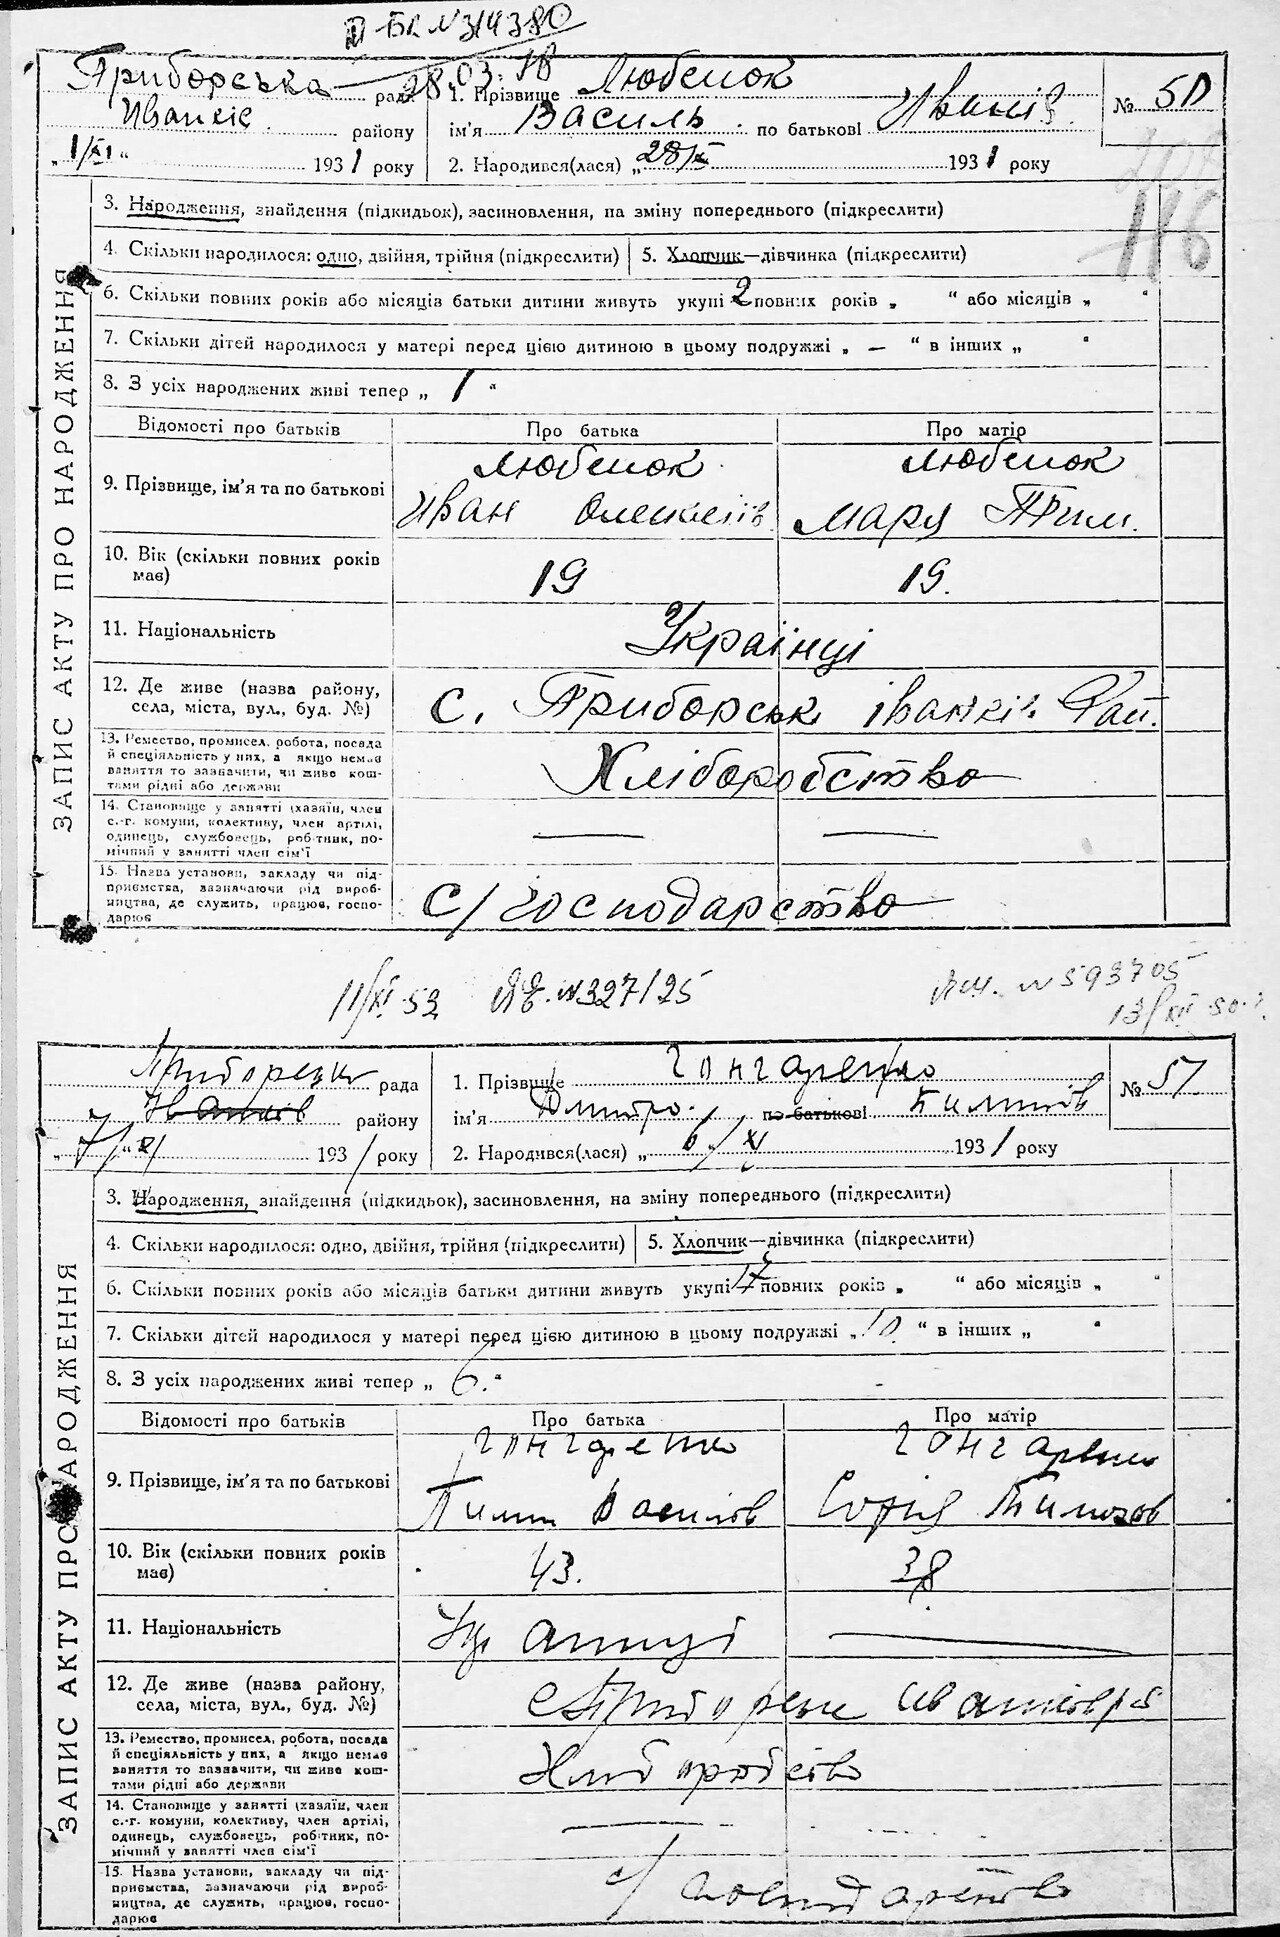 № 314380
28.03.
Приборська рада
1. Прізвище Любенок
№ 50
району
ім'я Василь по батькові Иванів
"1/XI" 1931 року
2. Народився(лася) „28/X 1931 року
116
ЗАПИС АКТУ ПРО НАРОДЖЕННЯ
3. Народження, знайдення (підкидьок), засиновлення, на зміну попереднього (підкреслити)
4. Скільки народилося: одно, двійня, трійня (підкреслити)
5. Хлопчик—дівчинка (підкреслити)
6. Скільки повних років або місяців батьки дитини живуть укупі 2 повних років „ “ або місяців „ “
7. Скільки дітей народилося у матері перед цією дитиною в цьому подружжі „ — “ в інших „ “
8. З усіх народжених живі тепер „ 1 “
Відомості про батьків
Про батька
Про матір
9. Прізвище, ім'я та по батькові
Любенок
Иван Олексіїв
Любенок
Маря Тим.
10. Вік (скільки повних років має)
19
19.
11. Національність
Українці
12. Де живе (назва району, села, міста, вул., буд. №)
с. Приборськ іванків. Рай.
13. Ремество, промисел, робота, посада й спеціяльність у них, а якщо немає заняття то зазначити, чи живе коштами рідні або держави
Хліборобство
14. Становище у занятті (хазяїн, член с.-г. комуни, колективу, член артілі, одинець, службовець, робітник, помічний у занятті член сім'ї
15. Назва установи, закладу чи підприємства, зазначаючи рід виробництва, де служить, працює, господарює
С/господарство
11/XI 52 ЯЕ. № 327125
№ 593705
13/XII 50 г.
рада
1. Прізвище Гончаренко
№ 51
району
ім'я Дмитро. по батькові Тимошів
7/XI 1931 року
2. Народився(лася) „6/XI 1931 року
ЗАПИС АКТУ ПРО НАРОДЖЕННЯ
3. Народження, знайдення (підкидьок), засиновлення, на зміну попереднього (підкреслити)
4. Скільки народилося: одно, двійня, трійня (підкреслити)
5. Хлопчик—дівчинка (підкреслити)
6. Скільки повних років або місяців батьки дитини живуть укупі 17 повних років „ “ або місяців „ “
7. Скільки дітей народилося у матері перед цією дитиною в цьому подружжі „10“ в інших „ “
8. З усіх народжених живі тепер „ 6. “
Відомості про батьків
Про батька
Про матір
9. Прізвище, ім'я та по батькові
Гончаренко
Василів
Гончаренко
Софія
10. Вік (скільки повних років має)
43.
38
11. Національність
Українці
12. Де живе (назва району, села, міста, вул., буд. №)
13. Ремество, промисел, робота, посада й спеціяльність у них, а якщо немає заняття то зазначити, чи живе коштами рідні або держави
Хліборобство
14. Становище у занятті (хазяїн, член с.-г. комуни, колективу, член артілі, одинець, службовець, робітник, помічний у занятті член сім'ї
15. Назва установи, закладу чи підприємства, зазначаючи рід виробництва, де служить, працює, господарює
с/господарство